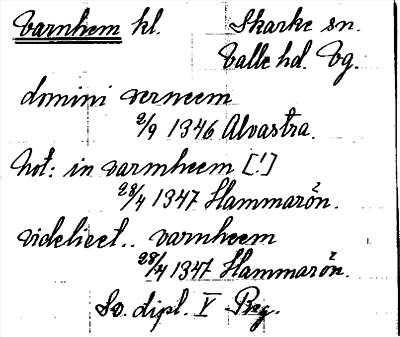 Varnhem kl. Skarke sn.
Valle hd. Vg.
domini verneem
2/9 1346 Alvastra.
not: in varmheem [!]
28/4 1347 Hammarön.
videlicet.. varnheem
28/4 1347 Hammarön.
Sv. dipl. V Prg.